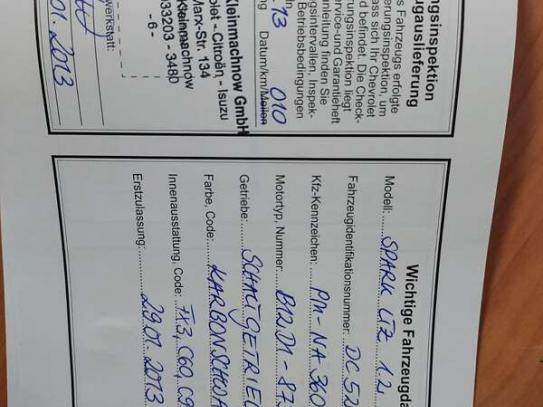 ngsinspektion
ugauslieferung
s Fahrzeugs erfolgte
erungsinspektion, um
ass sich Ihr Chevrolet
d befindet. Die Check-
rungsinspektion liegt
ervice- und Garantieheft
anleitung finden Sie
gsintervallen, Inspek-
Betriebsbedingungen
ln.
.13 010
ng Datum/km/Meilen
Kleinmachnow GmbH
olet - Citroën - Isuzu
Marx-Str. 134
Kleinmachnow
033203 - 3480
- 6 -
werkstatt:
01. 2013
Wichtige Fahrzeugda
Modell: SPARK LTZ 1.2
Fahrzeugidentifikationsnummer: DC 52
Kfz-Kennzeichen: PM - NA 360
Motortyp, Nummer: B12D1 - 87
Getriebe: SCHALTGETRIE
Farbe, Code: KARBONSCHWA
Innenausstattung, Code: 7X3, C60, C9
Erstzulassung: 29.01.2013